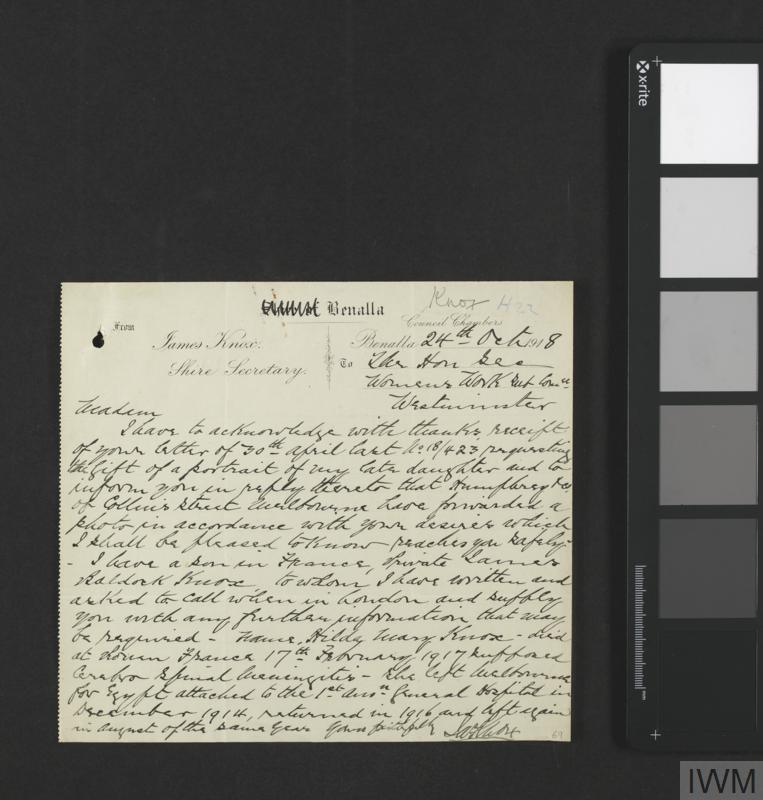 Knox H22
Benalla
From
James Knox.
Shire Secretary.
Council Chambers
Benalla 24th Oct 1918
To The Hon Sec
Women's Work Sub Comtt
Westminster
Madam
I have to acknowledge with thanks, receipt
of your letter of 30th april last No 18/423 requesting
the gift of a portrait of my late daughter and to
inform you in reply thereto that Humphrey & Co
of Collins Street Melbourne have forwarded a
photo in accordance with your desires which
I shall be pleased to know reaches you safely -
- I have a son in France, Private James
Baldock Knox to whom I have written and
asked to call when in London and supply
you with any further information that may
be required - Name, Hilda Mary Knox - died
at Rouen France 17th February 1917 supposed
Cerebro Spinal Meningitis - She left Melbourne
for Egypt attached to the 1st Ausn General Hospital in
December 1914, returned in 1916 and left again
in August of the same year Yours faithfully Jas Knox
69
x-rite
IWM